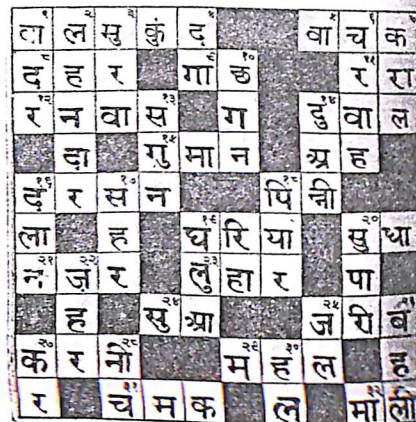 ता ल सु कुं द वा च क
द ह र गा छ र रा
र न वा स ग दु वा ल
दा गु मा न श्र ह
द र स न पि नी
ला ह घ रि या सु धा
न ज़ र लु हा र पा
ह सु श्रा ज री ब
क र नी म ह ल ह
र च म क ल मा ली